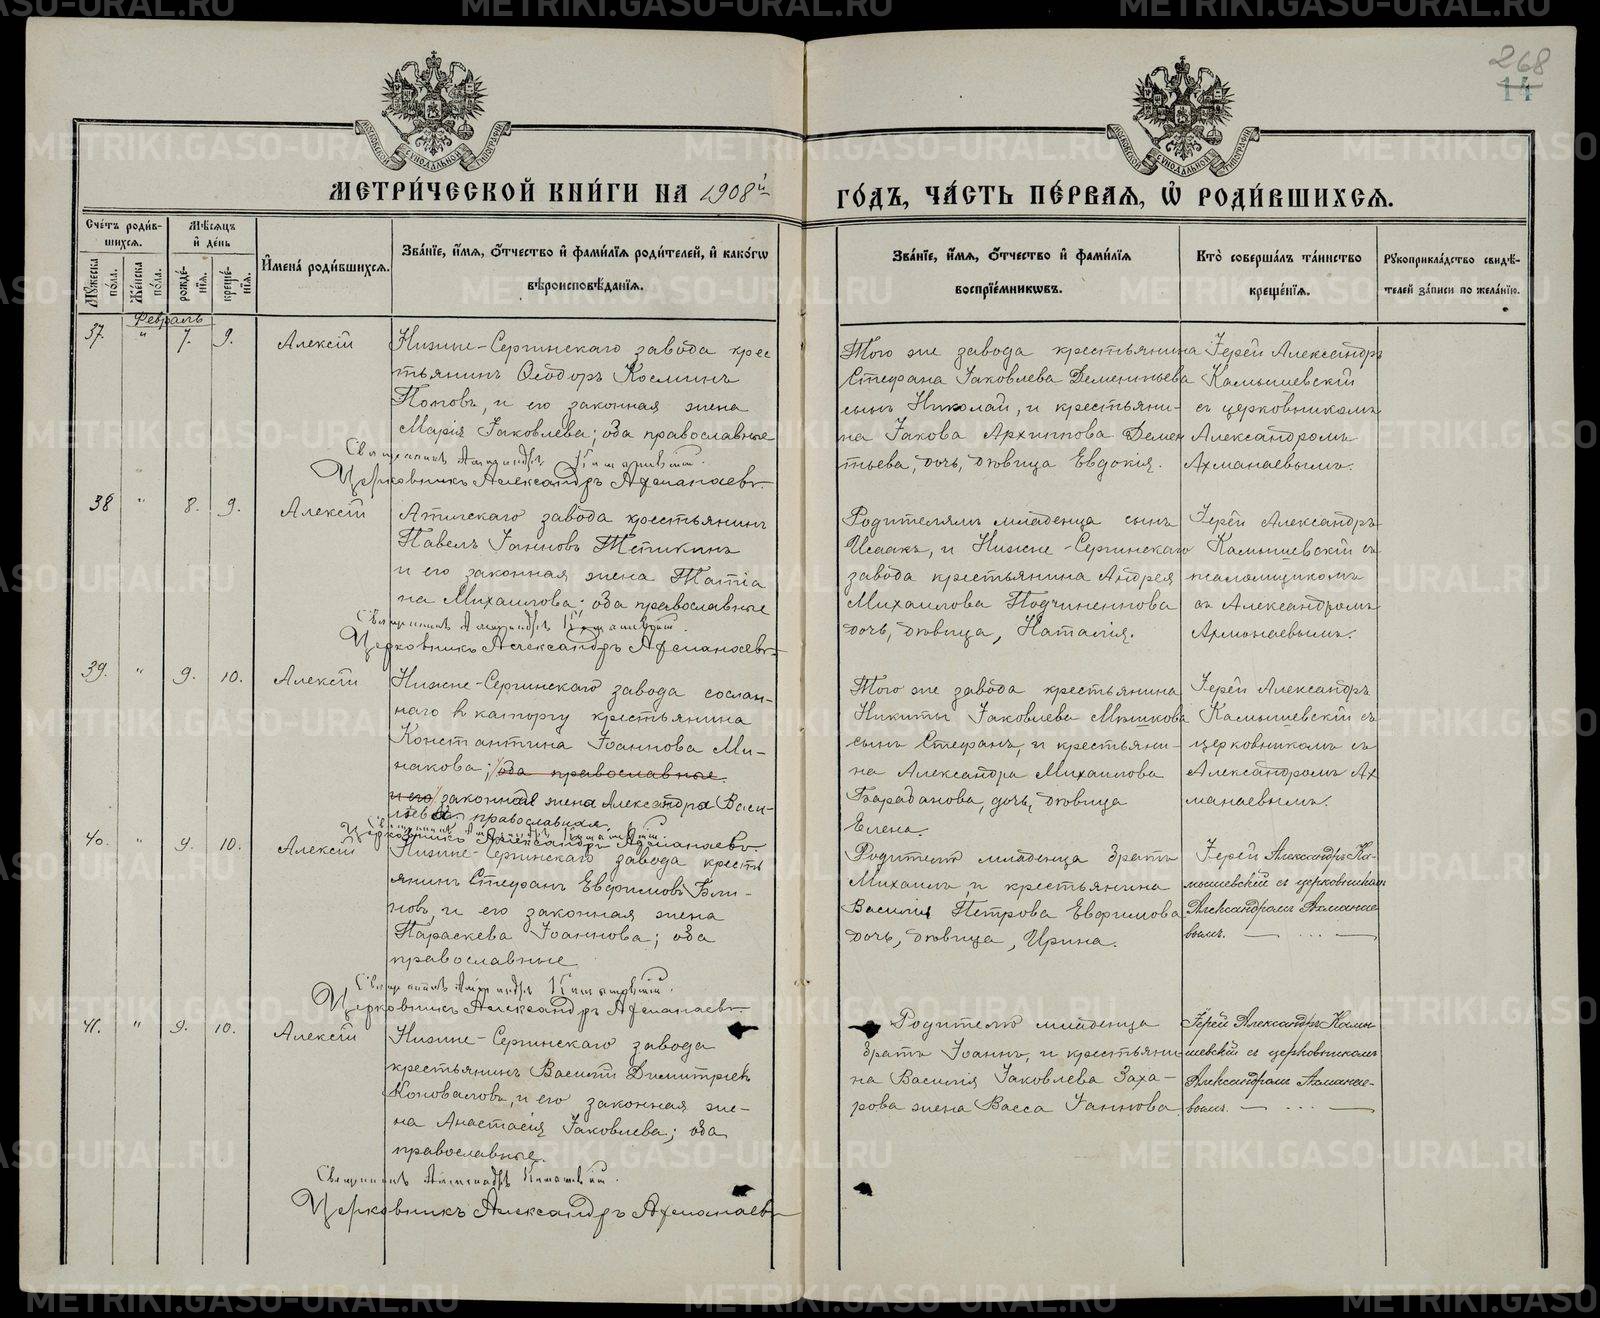 268
14
МОСКОВСКОЙ СѴНОДАЛЬНОЙ ТИПОГРАФІИ
МОСКОВСКОЙ СѴНОДАЛЬНОЙ ТИПОГРАФІИ
МЕТРИ́ЧЕСКОЙ КНИ́ГИ НА 1908й ГО́ДЪ, ЧА́СТЬ ПЕ́РВАЯ, Ѡ҆ РОДИ́ВШИХСЯ.
Сче́тъ роди́в-
шихся.
Мѣ́сяцъ
и҆ де́нь
Мꙋ́жеска по́ла.
Же́нска по́ла.
рожде́-нїя.
креще́-нїя.
И҆мена̀ роди́вшихся.
Зва́нїе, и҆́мя, ѻ҆́тчество и҆ фами́лїя роди́телей, и҆ како́гѡ
вѣроисповѣ́данїя.
Зва́нїе, и҆́мя, ѻ҆́тчество и҆ фами́лїя
воспрїе́мникѡвъ.
Кто̀ соверша́лъ та́инство
креще́нїя.
Рꙋкоприкла́дство свидѣ́-
телей за́писи по жела́нїю.
Февраль
37. " 7. 9. Алексій
Нижне-Сергинскаго завода крес
тьянинъ Ѳеодоръ Косминъ
Поповъ, и его законная жена
Марія Іаковлева; оба православные
Священникъ Александръ Камышевскій.
Церковникъ Александръ Ахманаевъ.
Того же завода крестьянина
Стефана Іаковлева Дементьева
сынъ Николай, и крестьяни-
на Іакова Архиппова Демен
тьева, дочь, дѣвица Евдокія.
Іерей Александръ
Камышевскій
съ церковникомъ
Александромъ
Ахманаевымъ.
38 " 8. 9. Алексій
Атигскаго завода крестьянинъ
Павелъ Іанновъ Тетикинъ
и его законная жена Татіа
на Михаилова; оба православные
Священникъ Александръ Камышевскій.
Церковникъ Александръ Ахманаевъ.
Родителямъ младенца сынъ
Исаакъ, и Нижне-Сергинскаго
завода крестьянина Андрея
Михаилова Подчиненнова
дочь, дѣвица, Наталія.
Іерей Александръ
Камышевскій съ
псаломщикомъ
съ Александромъ
Ахмонаевымъ.
39. " 9. 10. Алексій
Нижне-Сергинскаго завода сослан-
наго в каторгу крестьянина
Константина Іоаннова Ми-
накова; оба православные.
и его законная жена Александра Васи-
льева православная
Священникъ Александръ Камышевскій.
Церковникъ Александръ Ахманаевъ.
Того же завода крестьянина
Никиты Іаковлева Мошкова
сынъ Стефанъ, и крестьяни-
на Александра Михаилова
Барабанова, дочь, дѣвица
Елена.
Іерей Александръ
Камышевскій съ
церковникомъ съ
Александромъ Ах
манаевымъ.
40. " 9. 10. Алексій
Нижне-Сергинскаго завода кресть
янинъ Стефанъ Евфимовъ Бли-
новъ, и его законная жена
Параскева Іоаннова; оба
православные
Священникъ Александръ Камышевскій.
Церковникъ Александръ Ахманаевъ.
Родителю младенца братъ
Михаилъ, и крестьянина
Василія Петрова Евфимова
дочь, дѣвица, Ирина.
Іерей Александръ Ка-
мышевскій съ церковникомъ
Александромъ Ахманае-
вымъ. — ... —
41. " 9. 10. Алексій
Нижне-Сергинскаго завода
крестьянинъ Василій Димитріевъ
Коноваловъ, и его законная же-
на Анастасія Іаковлева; оба
православные.
Священникъ Александръ Камышевскій.
Церковникъ Александръ Ахманаевъ
Родителю младенца
братъ Іоаннъ, и крестьяни
на Василія Іаковлева Заха-
рова жена Васса Іаннова.
Іерей Александръ Камы
шевскій съ церковникомъ
Александромъ Ахманае-
вымъ. — ... —